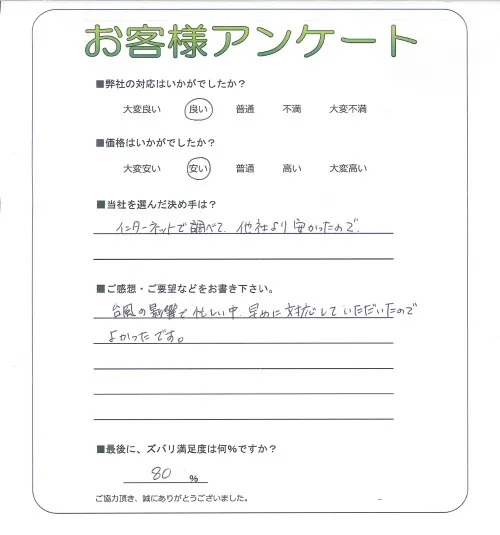 お客様アンケート
■弊社の対応はいかがでしたか？
大変良い 良い 普通 不満 大変不満
■価格はいかがでしたか？
大変安い 安い 普通 高い 大変高い
■当社を選んだ決め手は？
インターネットで調べて、他社より安かったので、
■ご感想・ご要望などをお書き下さい。
台風の影響で忙しい中、早めに対応していただいたので
よかったです。
■最後に、ズバリ満足度は何%ですか？
80 %
ご協力頂き、誠にありがとうございました。